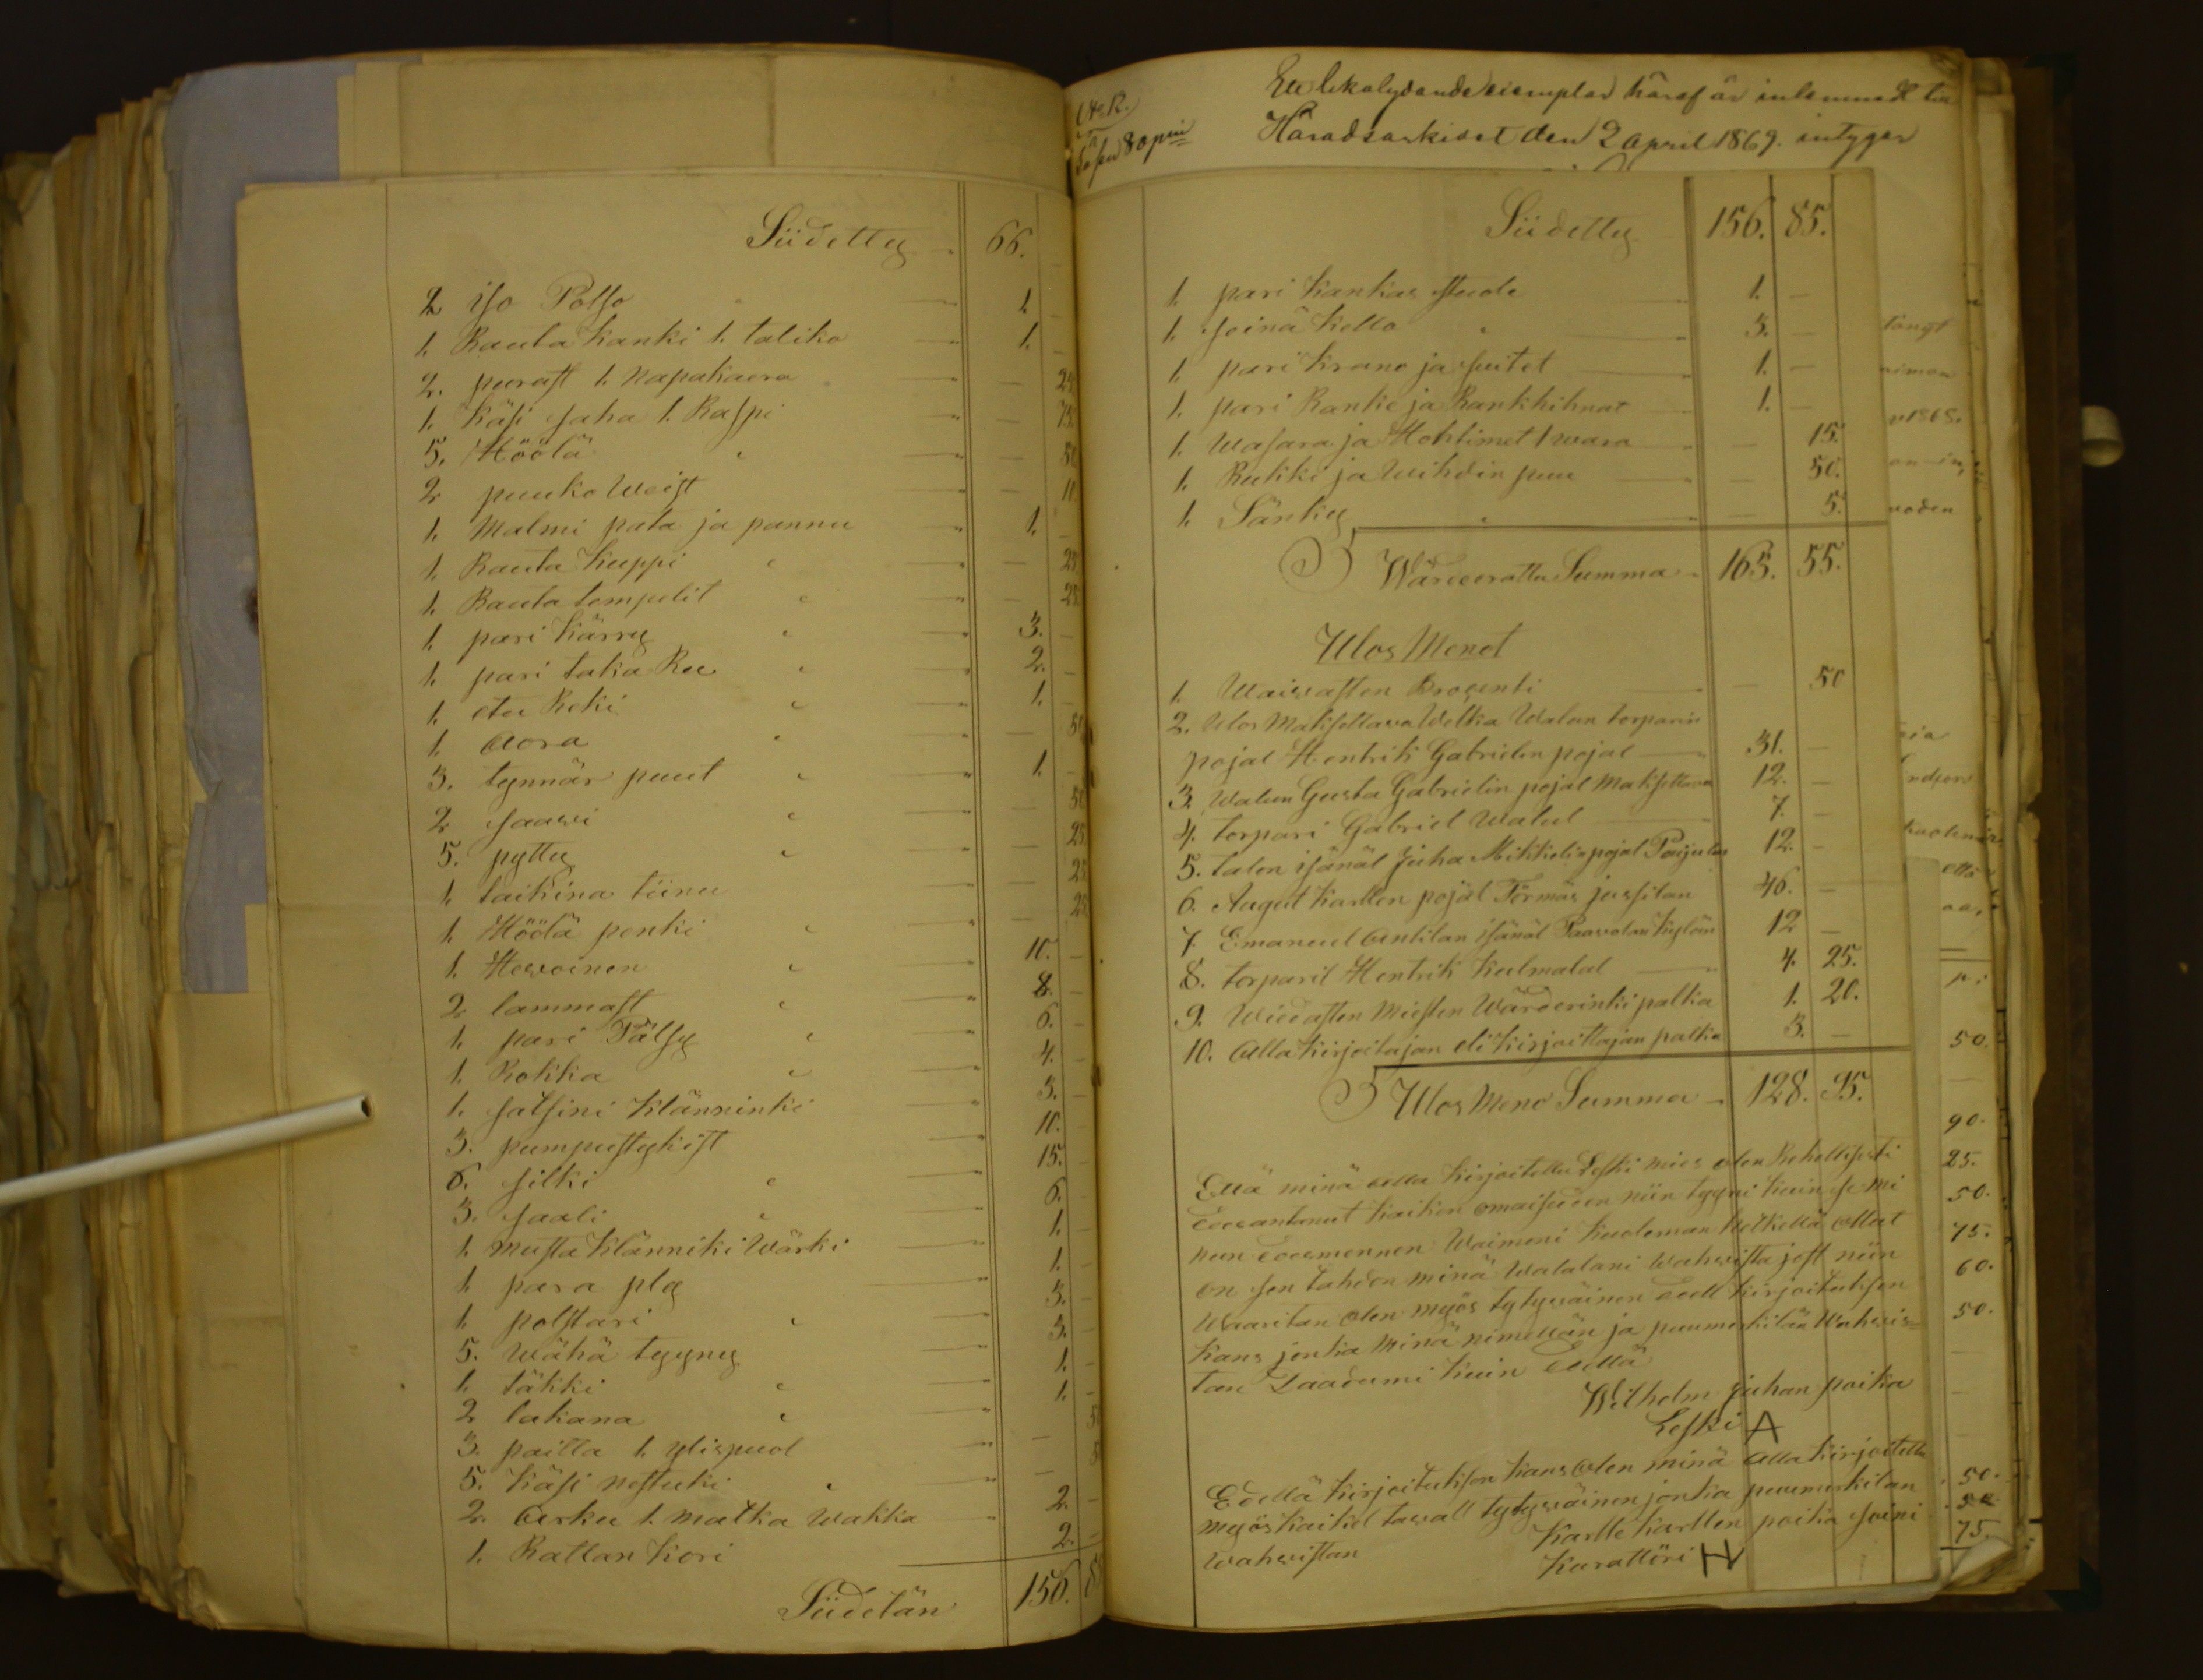 Siidetty 66.
2 iso Polso 1.
1. Rauta Kanki 1. taliko 1.
2. purast 1. Napakaera 25
1. Käsi saha 1. Raspi 75.
5. Höölä 50
2 puuko Weist 10
1. Malmi pata ja pannu 1.
1. Rauta Kuppi 25.
1. Rauta tempelit 25
1. pari Kärry 3.
1. pari taka Ree 2.
1. etu Reki 1.
1. aora 50
3. tynnär puut 1.
2 saavi 50
5. pytty 25
1. taikina tiinu 25
1. Höölä penki 25
1. Hevoinen 10.
2 lammast 8.
1. pari Pälsy 6.
1. Rokka 4.
1. satsini Klänninki 3.
3. pumpustykist 10.
6. silki 15.
3. saali 6.
1. musta Klänniki Wärki 1.
1. para ply 1.
1. polstari 3.
5. Wähä tyyny 3.
1. täkki 1.
2 lakana 1.
3. paitta 1. ylispuol 5
5. Käsi nestuki 5
2. Arku 1. matka Wakka 2.
1. Rattan Kori 2.
Siidetän 156. 8
Ett likalydande exemplar häraf är inlemnadt till
Häradsarkivet den 2 April 1869. intygar
80 pni
Siidetty 156. 85.
1. pari Kankas stuole 1.
1. seinä Kello 3.
1. pari Krano ja suitet 1.
1. pari Ranke ja Rankhihnat 1.
1. Wasara ja Hohtimet 1 wara 15.
1. Rukki ja Wihdin puu 50.
1. Sänky 5.
Wärteerattu Summa 163. 55.
Ulos Menot
1. Waivasten Prosenti 50
2. Ulos Maksettava Welka Walun torparin
pojal Hentrik Gabrielin pojal 31.
3. Walun Gusta Gabrielin pojal Maksettava 12.
4. torpari Gabriel Walul 7.
5. talon isänäl Juha Mikkelin pojal Paijulas 12.
6. August Karllen pojal Törmäs jussilan 46.
7. Emanuel Antilan isänäl Paavolan Kylän 12
8. torparil Hentrik Kulmalal 4. 25.
9. Wiidasten Miesten Wärderinki palka 1. 20.
10. Alla Kirjoitajan eli Kirjoittajan palka 3.
Ulos Meno Summa 128. 95.
Että minä alla Kirjoitettu Leski mies olen Rehellisesti
edesantanut Kaiken omaisuden niin tyyni Kuin se mi
nun edesmennen Waimoni Kuoleman hetkellä ollut
on sen tahdon minä Walalani Wahvista jost niin
Waaritan olen myös tytyväinen edell Kirjoituksen
Kans jonka minä nimellän ja puumerkilän Wahvis=
tan Laadumi Kuin Edellä
Wilhelm Juhan poika
Leski A
Edellä Kirjoituksen Kans olen minä alla Kirjoitettu
myös Kaikel tavall tytyväinen jonka puumerkilän
Wahvistan Karlle Karllen poika soini
Kurattöri H
1868.
voden
että
aa,
p:
50.
90.
25.
50.
75.
60.
50.
50.
50
75.